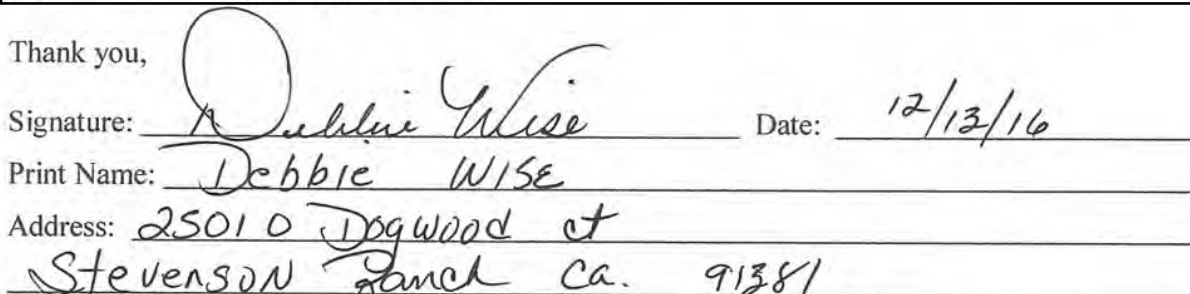 Thank you,
Signature: Debbie Wise Date: 12/13/16
Print Name: Debbie WISE
Address: 25010 Dogwood ct
Stevenson Ranch Ca. 91381